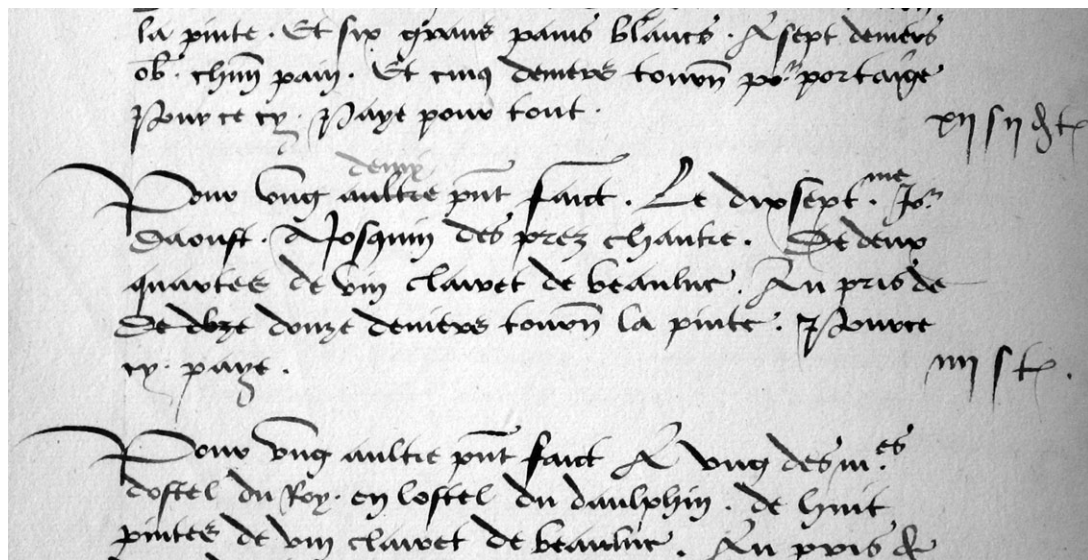 la pinte. Et six grans pains blancs. A sept deniers
ob. chũn pain. Et cinq deniers tourñ po.r portaige
Pour ce cy. Paye pour tout.
xij s ij d t
deux
Pour ung aultre pñt faict. Le dixsept.me Jo.r
Daoust. A Josquin des prez chantre. De deux
quartes de vin clairet de beaulne. Au pris de
De douze deniers tourñ la pinte. Pource
cy. paye.
iiij s t.
Pour ung aultre pñt faict A ung des m.es
dostel du Roy. en lostel du daulphin. de huit
pintes de vin clairet de beaulne. Au pris de